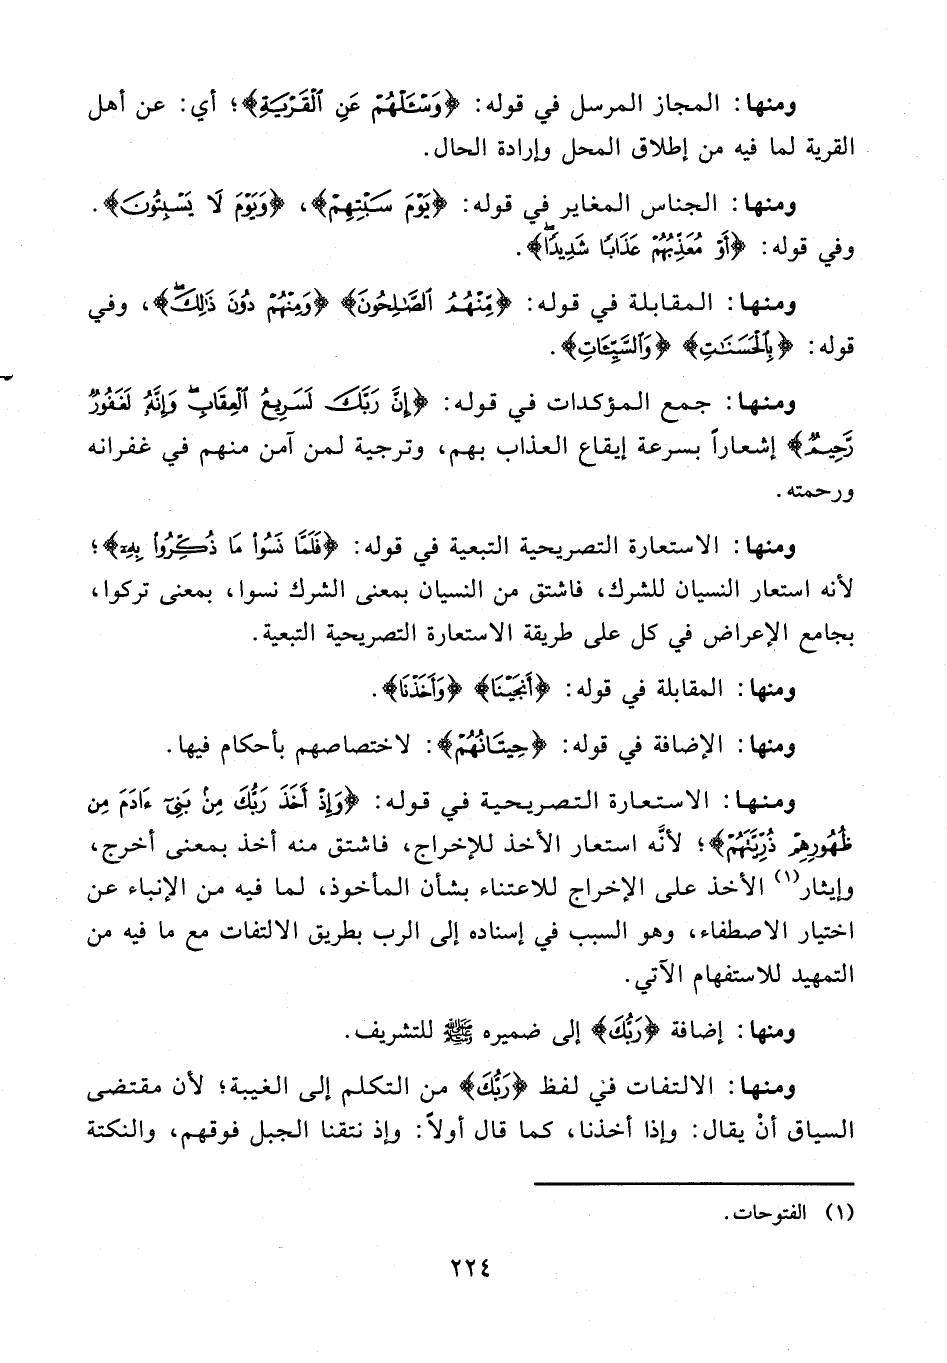 ومنها: المجاز المرسل في قوله: ﴿وَسْـَٔلْهُمْ عَنِ ٱلْقَرْيَةِ﴾؛ أي: عن أهل
القرية لما فيه من إطلاق المحل وإرادة الحال.
ومنها: الجناس المغاير في قوله: ﴿يَوْمَ سَبْتِهِمْ﴾، ﴿وَيَوْمَ لَا يَسْبِتُونَ﴾.
وفي قوله: ﴿أَوْ مُعَذِّبُهُمْ عَذَابًا شَدِيدًا ۖ﴾.
ومنها: المقابلة في قوله: ﴿مِّنْهُمُ ٱلصَّـٰلِحُونَ﴾ ﴿وَمِنْهُمْ دُونَ ذَٰلِكَ ۖ﴾، وفي
قوله: ﴿بِٱلْحَسَنَـٰتِ﴾ ﴿وَٱلسَّيِّـَٔاتِ﴾.
ومنها: جمع المؤكدات في قوله: ﴿إِنَّ رَبَّكَ لَسَرِيعُ ٱلْعِقَابِ ۖ وَإِنَّهُۥ لَغَفُورٌ
رَّحِيمٌ﴾ إشعاراً بسرعة إيقاع العذاب بهم، وترجية لمن آمن منهم في غفرانه
ورحمته.
ومنها: الاستعارة التصريحية التبعية في قوله: ﴿فَلَمَّا نَسُوا۟ مَا ذُكِّرُوا۟ بِهِۦٓ﴾؛
لأنه استعار النسيان للشرك، فاشتق من النسيان بمعنى الشرك نسوا، بمعنى تركوا،
بجامع الإعراض في كل على طريقة الاستعارة التصريحية التبعية.
ومنها: المقابلة في قوله: ﴿أَنجَيْنَا﴾ ﴿وَأَخَذْنَا﴾.
ومنها: الإضافة في قوله: ﴿حِيتَانُهُمْ﴾: لاختصاصهم بأحكام فيها.
ومنها: الاستعارة التصريحية في قوله: ﴿وَإِذْ أَخَذَ رَبُّكَ مِنۢ بَنِىٓ ءَادَمَ مِن
ظُهُورِهِمْ ذُرِّيَّتَهُمْ﴾؛ لأنَّه استعار الأخذ للإخراج، فاشتق منه أخذ بمعنى أخرج،
وإيثار(١) الأخذ على الإخراج للاعتناء بشأن المأخوذ، لما فيه من الإنباء عن
اختيار الاصطفاء، وهو السبب في إسناده إلى الرب بطريق الالتفات مع ما فيه من
التمهيد للاستفهام الآتي.
ومنها: إضافة ﴿رَبُّكَ﴾ إلى ضميره ﷺ للتشريف.
ومنها: الالتفات في لفظ ﴿رَبُّكَ﴾ من التكلم إلى الغيبة؛ لأن مقتضى
السياق أنْ يقال: وإذا أخذنا، كما قال أولاً: وإذ نتقنا الجبل فوقهم، والنكتة
(١) الفتوحات.
٢٢٤